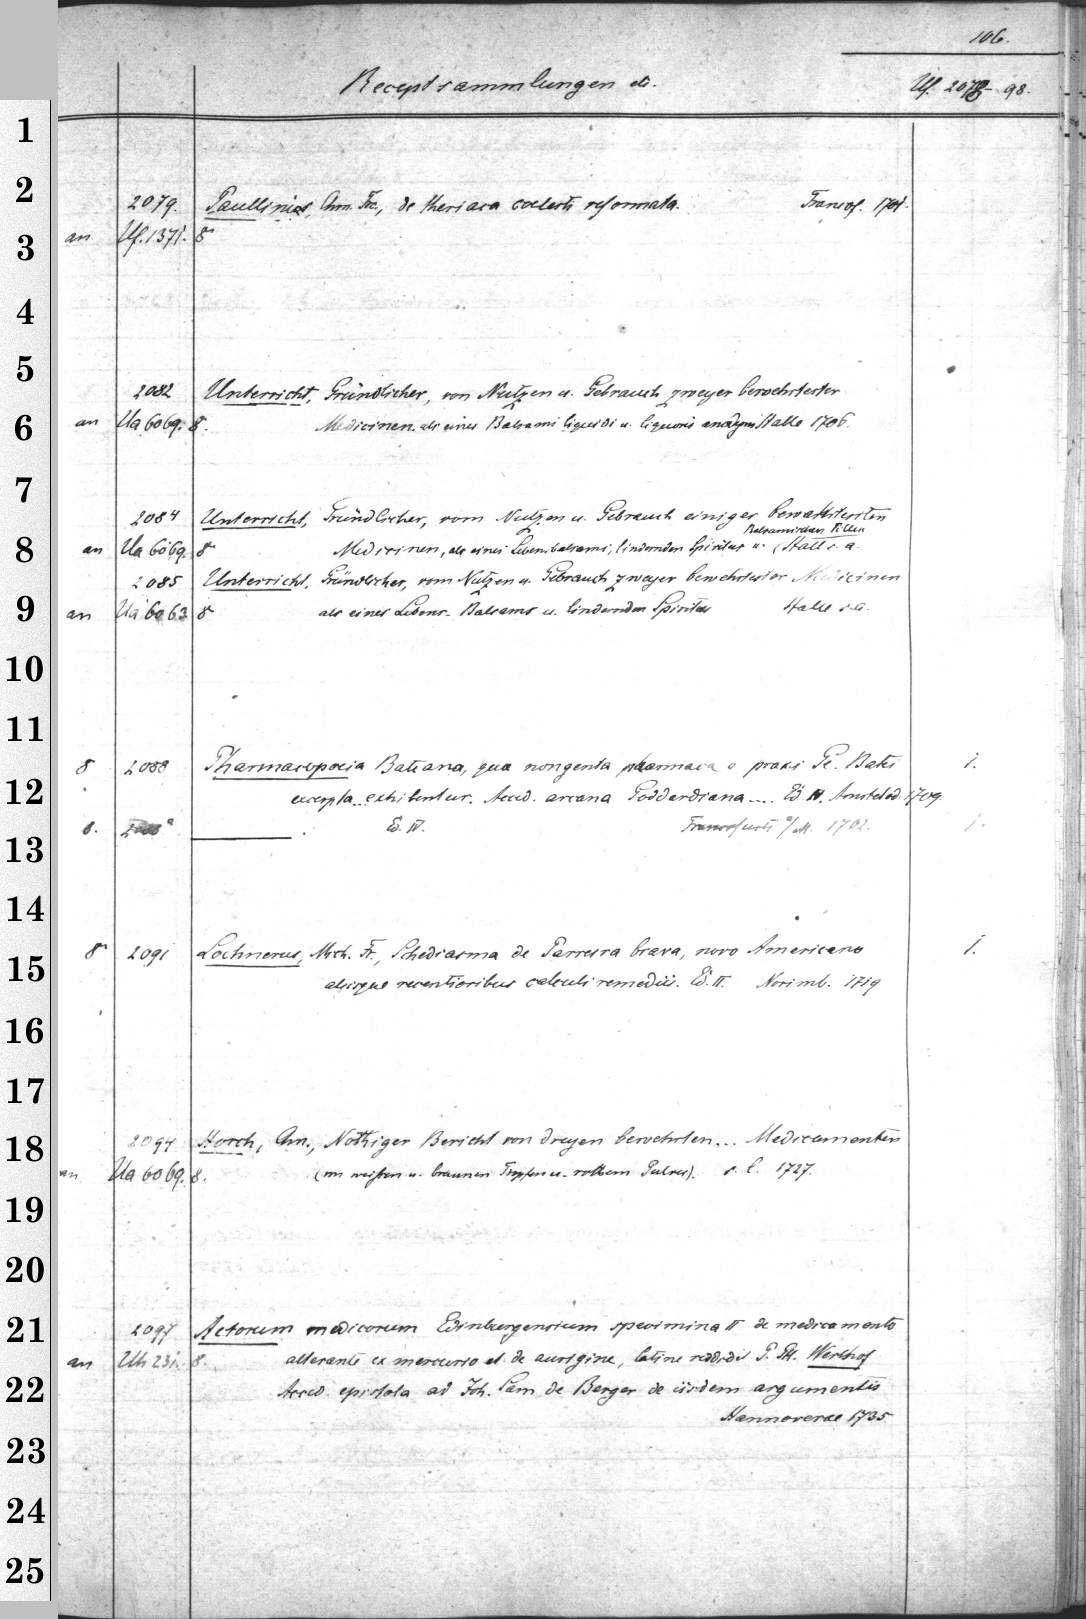 106.
Receptsammlungen etc. Uf. 2079-98.
1
2
2079. Paullinius, Chn. Fr., de theriaca coelesti reformata. Francof. 1701.
3
an Uf. 1371. 8°
4
5
2082 Unterricht, Gründlicher, von Nutzen u. Gebrauch zweyer bewehrtester
6
an Ua 6069. 8°. Medicinen als eines Balsami liquidi u. liquoris anodyni Halle 1706.
7
2084 Unterricht, Gründlicher, vom Nutzen u. Gebrauch einiger bewährtesten
Balsamischen Pillen
8
an Ua 6069. 8° Medicinen, als eines Lebensbalsams, lindernden Spiritus u. Halle s. a.
2085 Unterricht, Gründlicher, vom Nutzen u. Gebrauch zweyer bewehrtester Medicinen
9
an Ua 6063 8° als eines Lebens-Balsams u. lindernden Spiritus Halle s. a.
10
11
8 2088 Pharmacopoeia Bateana, qua nongenta pharmaca e praxi Ge. Batei 1.
12
excerpta exhibentur. Acced. arcana Goddardiana .... Ed. Amstelod. 1709.
8. 2088a ——— . Ed. IV. Francofurti a/M. 1702. 1.
13
14
8° 2091 Lochnerus, Mich. Fr., Schediasma de Parreira brava, novo Americano 1.
15
aliisque recentioribus calculi remediis. Ed. II. Norimb. 1719
16
17
2094 Horch, Chn., Nöthiger Bericht von dreyen bewehrten... Medicamenten
18
an Ua 6069. 8. (im weissen u. braunen Tropfen u. rothem Pulver). s. l. 1727.
19
20
2097 Actorum medicorum Edinburgensium specimina II de medicamento
21
an Uh 231. 8. alterante ex mercurio et de aurigine, latine reddidit P. Gli. Werlhof
22
Acced. epistola ad Joh. Sam. de Berger de iisdem argumentis
Hannoverae 1735
23
24
25